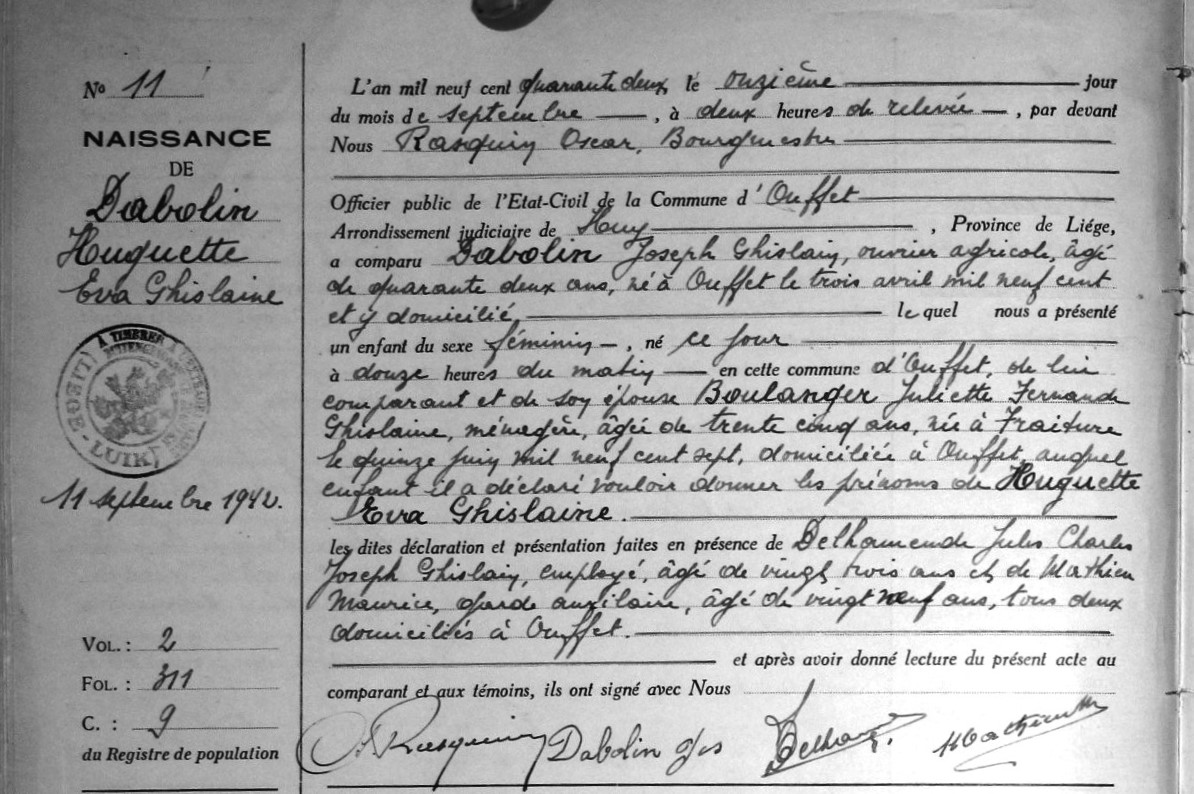 No 11
NAISSANCE
DE
Dabolin
Huguette
Eva Ghislaine
À TIMBRER À L'EXTRAORD
LUIK
11 septembre 1942.
VOL. : 2
FOL. : 311
C. : 9
du Registre de population
L'an mil neuf cent quarante deux le onzième jour
du mois de septembre, à deux heures de relevée, par devant
Nous Rasquin Oscar, Bourgmestre
Officier public de l'Etat-Civil de la Commune d'Ouffet
Arrondissement judiciaire de Huy, Province de Liége,
a comparu Dabolin Joseph Ghislain, ouvrier agricole, âgé
de quarante deux ans, né à Ouffet le trois avril mil neuf cent
et y domicilié, lequel nous a présenté
un enfant du sexe féminin, né ce jour
à douze heures du matin en cette commune d'Ouffet, de lui
comparant et de son épouse Boulanger Juliette Fernande
Ghislaine, ménagère, âgée de trente cinq ans, née à Fraiture
le quinze juin mil neuf cent sept, domiciliée à Ouffet, auquel
enfant il a déclaré vouloir donner les prénoms de Huguette
Eva Ghislaine.
les dites déclaration et présentation faites en présence de Delhamende Jules Charles
Joseph Ghislain, employé, âgé de vingt trois ans et de Mathieu
Maurice, garde auxilaire, âgé de vingt neuf ans, tous deux
domiciliés à Ouffet.
et après avoir donné lecture du présent acte au
comparant et aux témoins, ils ont signé avec Nous
Rasquin Dabolin Jos Mathieu M